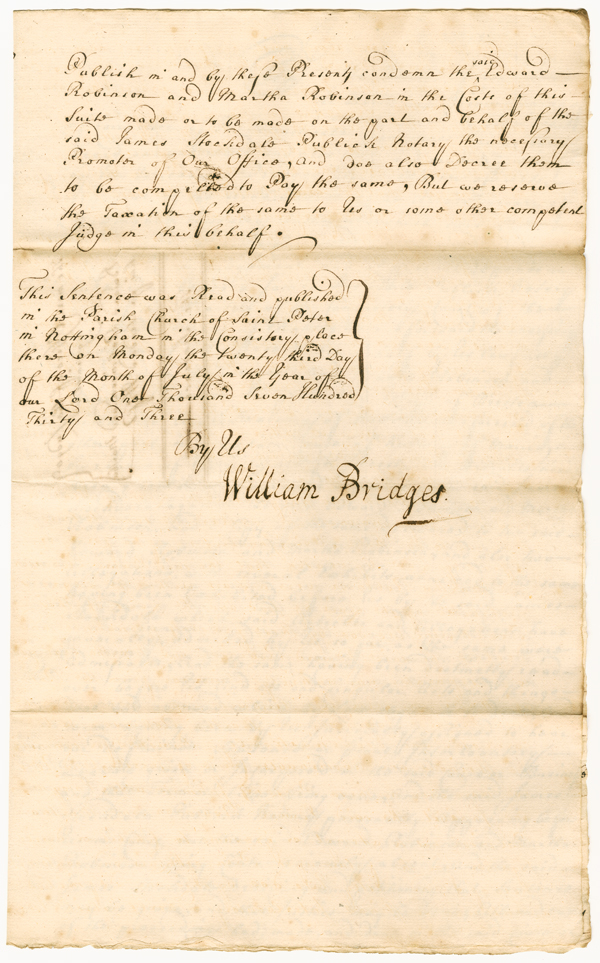 Publish in and by these Presents condemn the said Edward
Robinson and Martha Robinson in the Costs of this
Suite made or to be made on the part and behalf of the
said James Stocksdale Publick Notary the necessary
Promoter of Our Office, and doe also Decree them
to be compelled to Pay the same, But we reserve
the Taxation of the same to Us or some other competent
Judge in this behalf.
This Sentence was Read and published
in the Parish Church of Saint Peter
in Nottingham in the Consistory place
there on Monday the twenty third Day
of the Month of July in the Year of
our Lord One Thousand Seven Hundred
Thirty and Three
By Us
William Bridges.